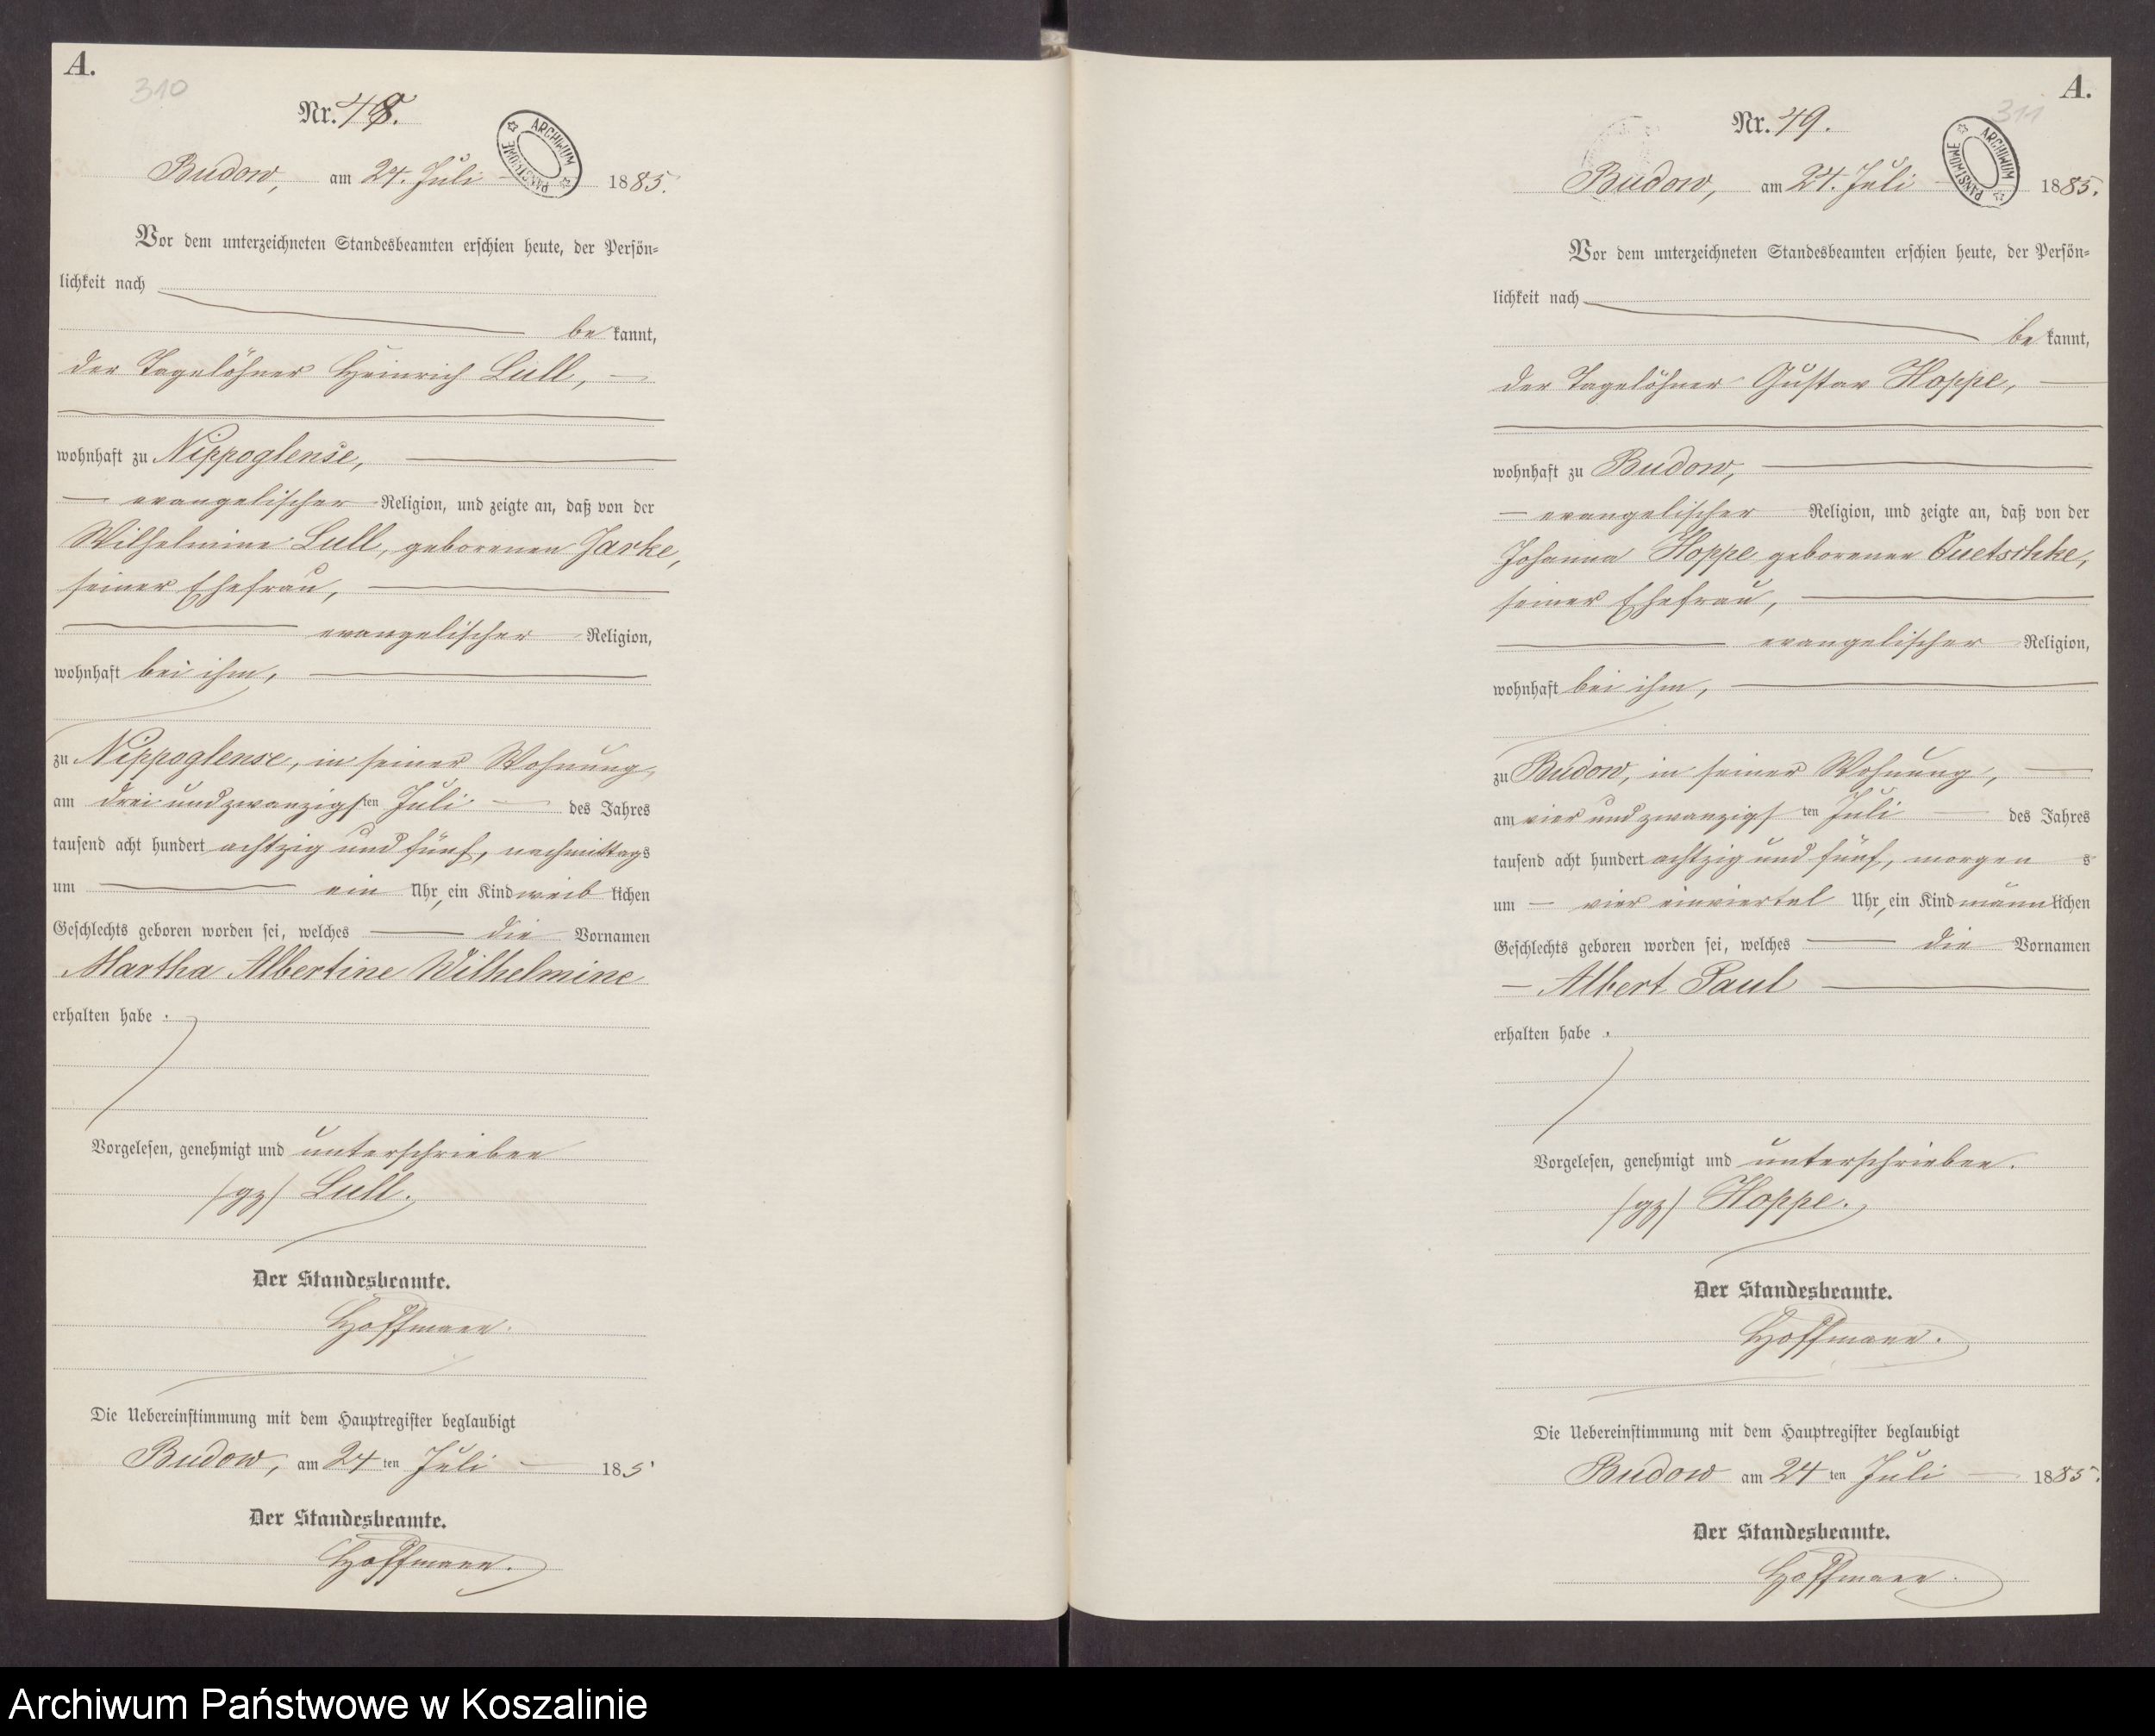 A.
310
Nr. 48.
ARCHIWUM PAŃSTWOWE
Budow, am 24. Juli 1885.
Vor dem unterzeichneten Standesbeamten erschien heute, der Persön=
lichkeit nach
be kannt,
der Tagelöhner Heinrich Lull,
wohnhaft zu Nippoglense,
evangelischer Religion, und zeigte an, daß von der
Wilhelmine Lull, geborenen Jarke,
seiner Ehefrau,
evangelischer Religion,
wohnhaft bei ihm,
zu Nippoglense, in seiner Wohnung,
am drei und zwanzigsten Juli des Jahres
tausend acht hundert achtzig und fünf, nachmittags
um ein Uhr, ein Kind weib lichen
Geschlechts geboren worden sei, welches die Vornamen
Martha Albertine Wilhelmine
erhalten habe .
Vorgelesen, genehmigt und unterschrieben
(gz) Lull.
Der Standesbeamte.
Hoffmann.
Die Uebereinstimmung mit dem Hauptregister beglaubigt
Budow, am 24 ten Juli 18 5
Der Standesbeamte.
Hoffmann.
A.
311
Nr. 49.
ARCHIWUM PAŃSTWOWE
Budow, am 24. Juli 1885.
Vor dem unterzeichneten Standesbeamten erschien heute, der Persön=
lichkeit nach
be kannt,
der Tagelöhner Gustav Hoppe,
wohnhaft zu Budow,
evangelischer Religion, und zeigte an, daß von der
Johanna Hoppe geborenen Quetschke,
seiner Ehefrau,
evangelischer Religion,
wohnhaft bei ihm,
zu Budow, in seiner Wohnung,
am vier und zwanzigs ten Juli des Jahres
tausend acht hundert achtzig und fünf, morgen s
um vier einviertel Uhr, ein Kind männ lichen
Geschlechts geboren worden sei, welches die Vornamen
Albert Paul
erhalten habe .
Vorgelesen, genehmigt und unterschrieben.
(gz) Hoppe.
Der Standesbeamte.
Hoffmann.
Die Uebereinstimmung mit dem Hauptregister beglaubigt
Budow am 24 ten Juli 1885.
Der Standesbeamte.
Hoffmann.
Archiwum Państwowe w Koszalinie